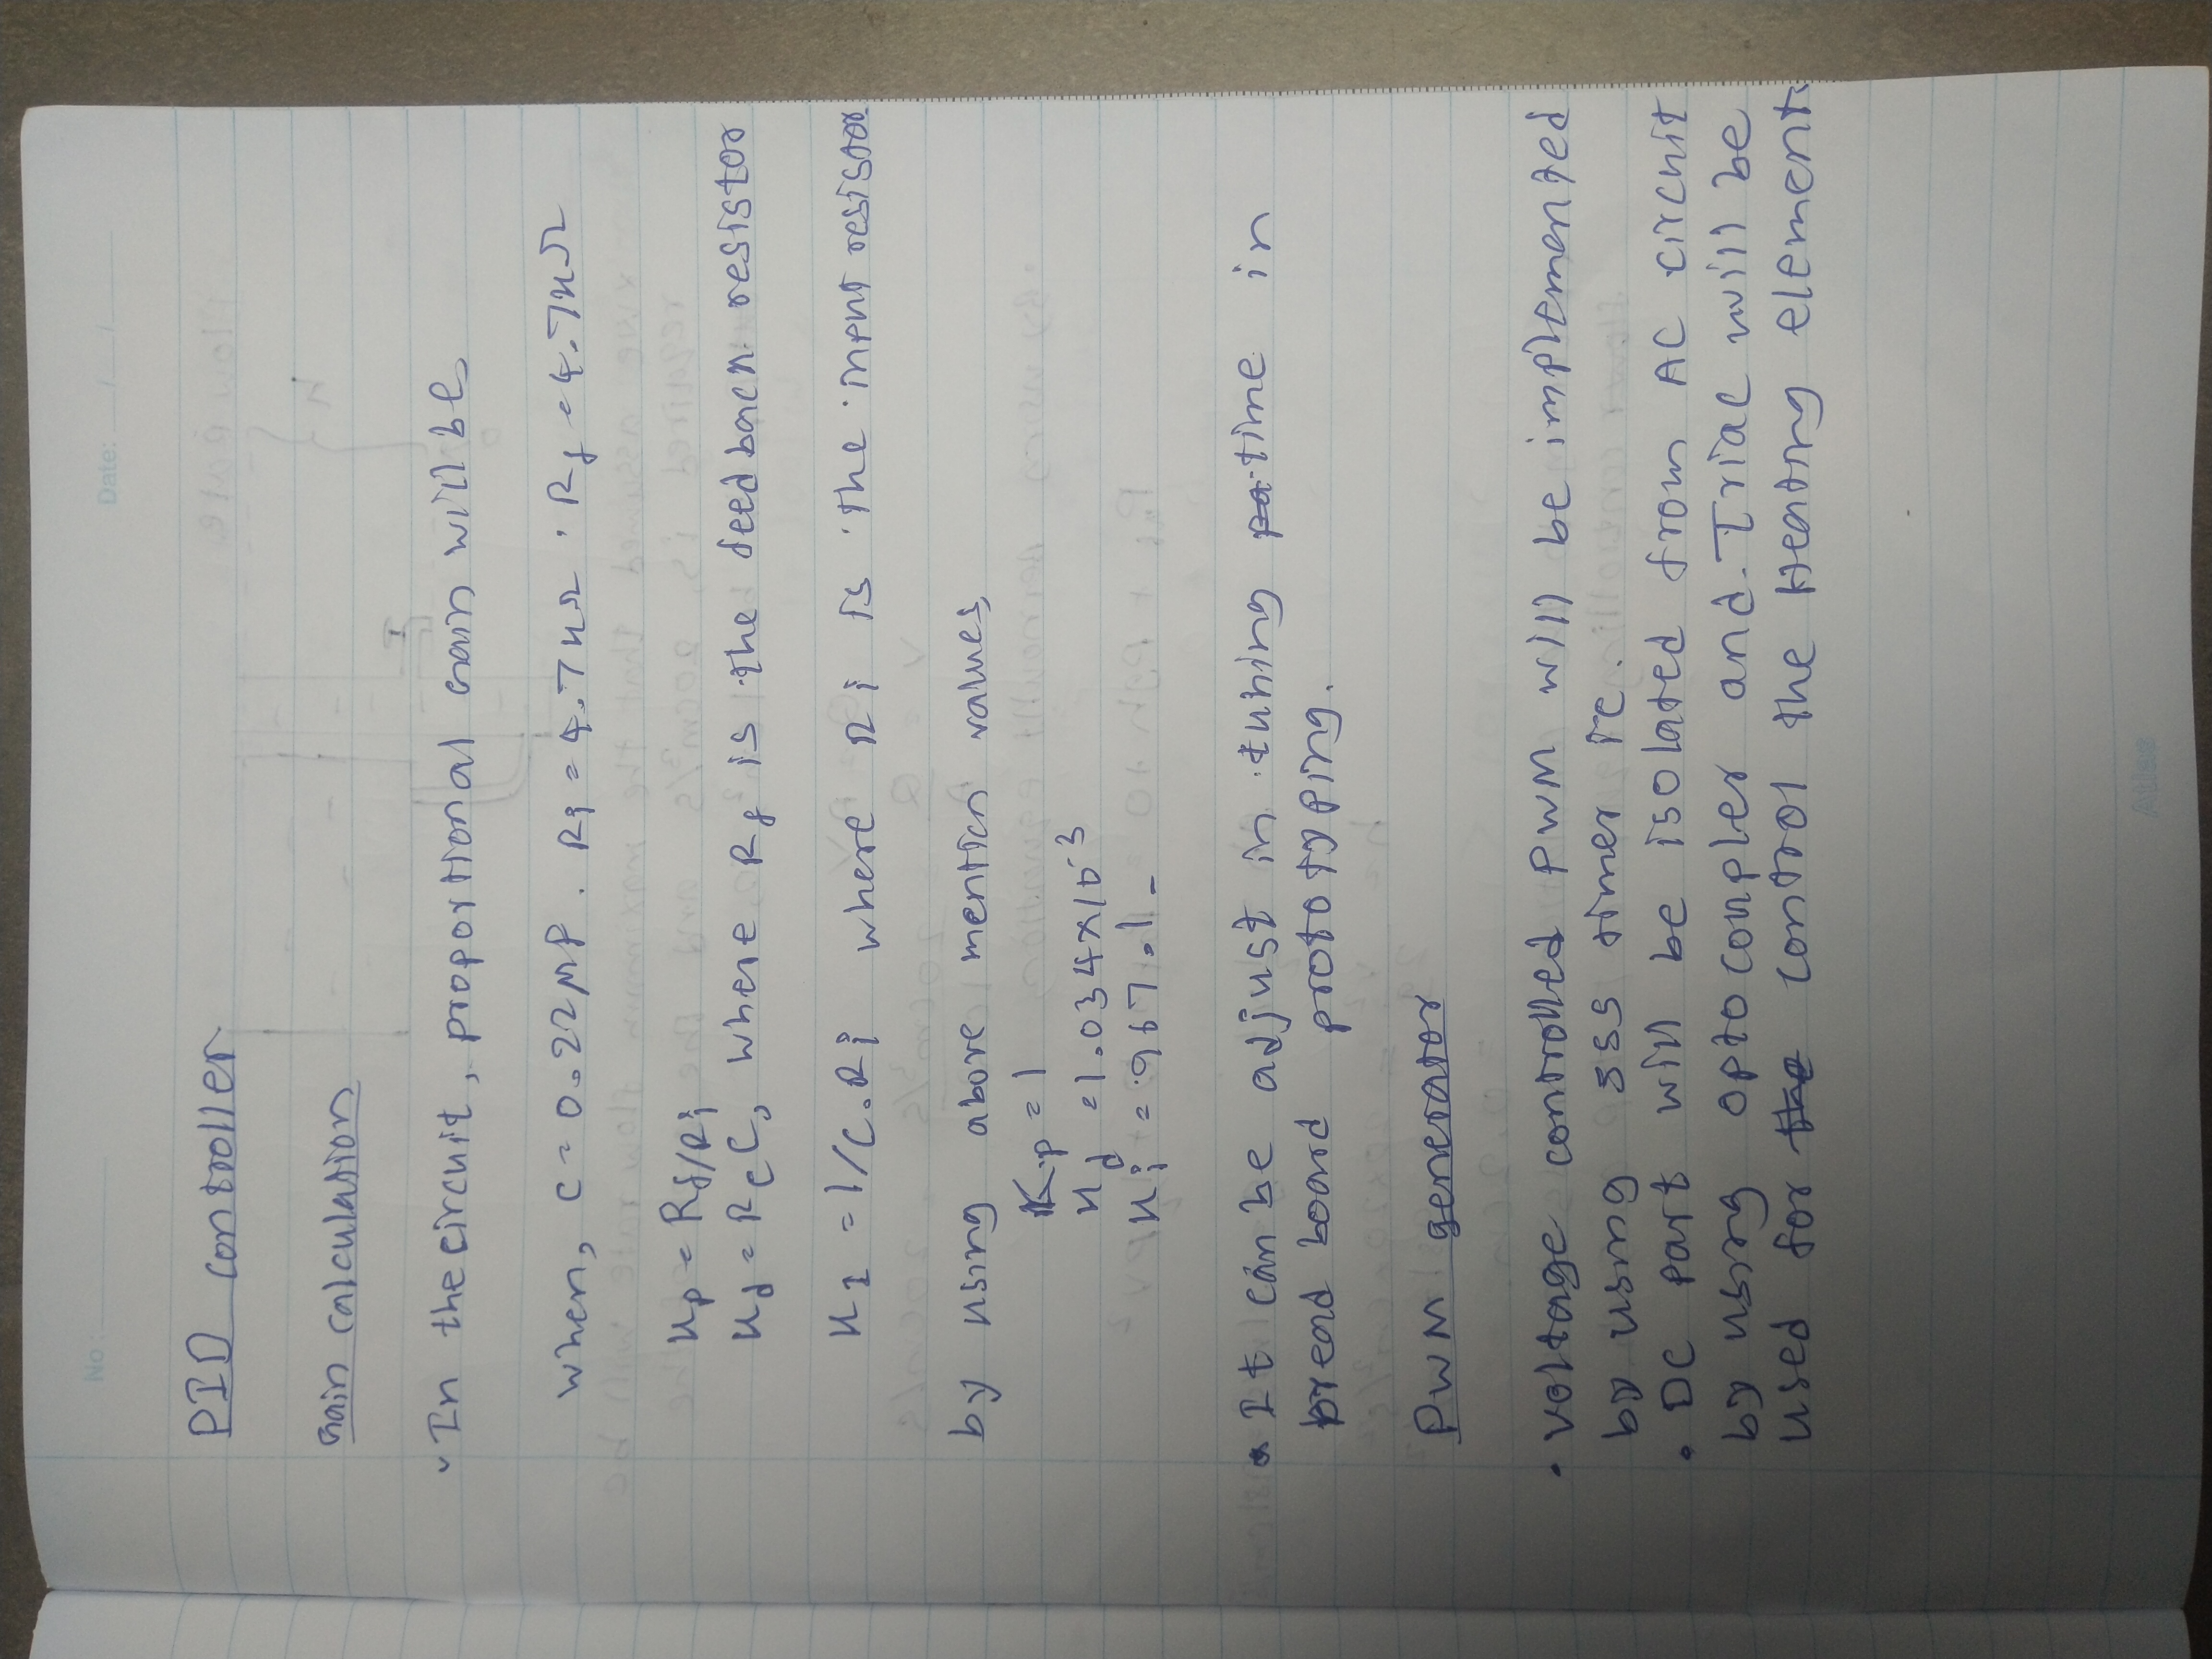 No :
Date: / /
PID controller
Gain calculation
In the circuit, proportional Gain will be,
when, C = 0.22μF. Ri = 4.7KΩ. Rf = 4.7KΩ
Kp = Rf/Ri
Kd = RfC, where Rf is the feedback resistor
KI = 1/C.Ri where Ri is the input resistor
by using above mention values,
Kp = 1
Kd = 1.034×10-3
Ki = 967.1
• It can be adjust in tuning time in
bread board prototyping.
PWM generator
• voltage controlled PWM will be implemented
by using 555 timer ic.
• DC part will be isolated from AC circuit
by using optocoupler and Triac will be
used for control the Heating element.
Atlas